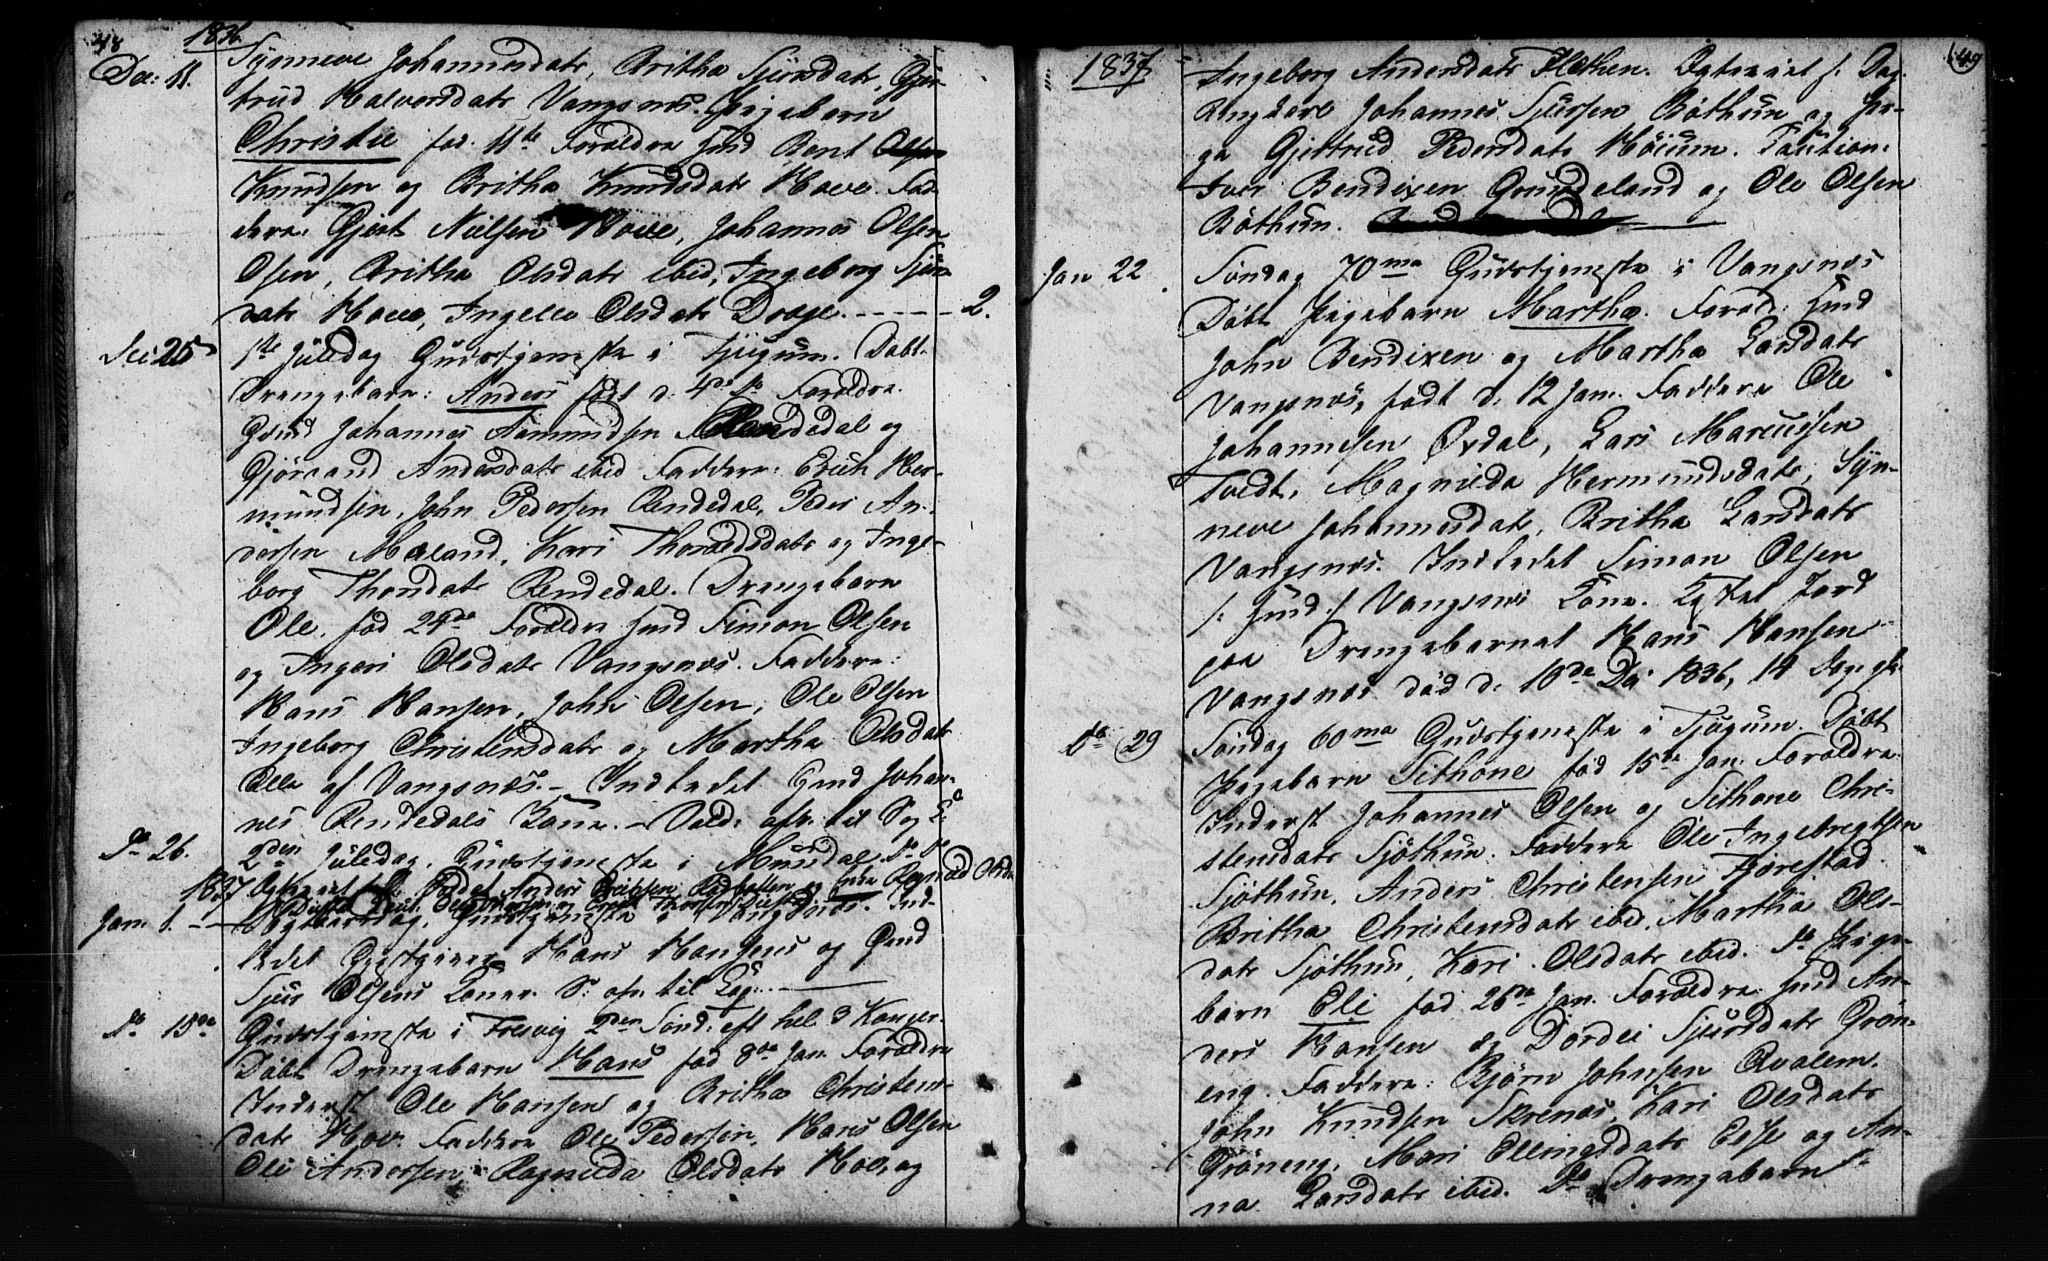 48 1836.
Dec: 11. Synneve Johannesdatr, Britha Sjursdatr, Gjer-
trud Halvorsdatr Vangsnes. Pigebarn
Christie fød. 11te Forældre Gmd Bent Olsen
Knudsen og Britha Knudsdatr Hove. Fad-
dere: Gjert Nielsen Hove, Johannes Olsen
Olsen, Britha Olsdatr ibid, Ingeborg Sjurs-
datr Hove, Ingelev Olsdatr Drage. - - - - - 2.
Dec: 25 1ste Juledag Gudstjeneste i Tjugum. Døbt
Drengebarn: Anders født d. 4de Forældre
Gmd Johannes Aamundsen Rendedal og
Gjøraand Andersdatr ibid Faddere: Erich Her-
mundsen, John Pedersen Rendedal, Peder An-
dersen Mæland, Kari Thoraldsdatr og Inge-
borg Thorsdatr Rendedal. Drengebarn
Ole, fød 21de Forældre Gmd Simon Olsen
og Ingeri Olsdatr Vangsnes. Faddere:
Hans Hansen, John Olsen, Ole Olsen
Ingeborg Christensdatr og Martha Olsdatr
Alle af Vangsnes. - Indledet Gmd Johan-
nes Rendedals Kone. -
Do 26. 2den Juledag. Gudstjeneste i Mundal
1837
Jan. 1. - Nytaarsdag, Gudstjeneste i Vangsnes. Ind-
ledet Gjestgiver Hans Hansens og Gmd
Sjur Olsens Koner.
Do 15de Gudstjeneste i Fresvig 2den Sønd: eft hel 3 Konger
Døbt Drengebarn Hans fød 8de Jan. Forældre
Inderst Ole Hansen og Britha Christens-
datr Hov. Faddere Ole Pedersen, Hans Olsen
Ole Andersen, Ragnilda Olsdatr Hov, og
49
1837 Ingeborg Andersdatr Flethen.
Ungkarl Johannes Sjursen Bøthun og Pi-
ge Gjertrud Pedersdatr Høium. Caution:
Iver Bendixen Grindeland og Ole Olsen
Bøthun.
Jan 22. Søndag 70ma Gudstjeneste i Vangsnes
Døbt Pigebarn Martha. Foræld: Gmd
John Bendixen og Martha Larsdatr
Vangsnes, født d. 12 Jan. Faddere Ole
Johannesen Oxdal, Lars Marcussen
Tvedt, Magnilda Hermundsdatr, Syn-
neve Johannesdatr, Britha Larsdatr
Vangsnes. Indledet Simon Olsen
/: Gmd :/ Vangsnes Kone. Kastet Jord
paa Drengebarnet Hans Hansen
Vangsnes død d. 18de De: 1836, 14 Dage gl:
Do 29 Søndag 60ma Gudstjeneste i Tjugum Døbt
Pigebarn Sithone fød 15de Jan. Forældre
Inderst Johannes Olsen og Sithone Chri-
stensdatr Sjøthun. Faddere Ole Ingebregtsen
Sjøthun, Anders Christensen Farestad
Britha Christensdatr ibid, Martha Ols-
datr Sjøthun, Kari Olsdatr ibid. Do Pige-
barn Eli fød 26de Jan. Forældre Gmd An-
ders Hansen og Dordei Sjursdatr Grøn-
eng. Faddere: Bjørn Johnsen Qvalem.
John Knudsen Skrenes, Kari Olsdatr
Grøneng, Mari Ellingsdatr Esse og An-
na Larsdatr ibid. Do Drengebarn